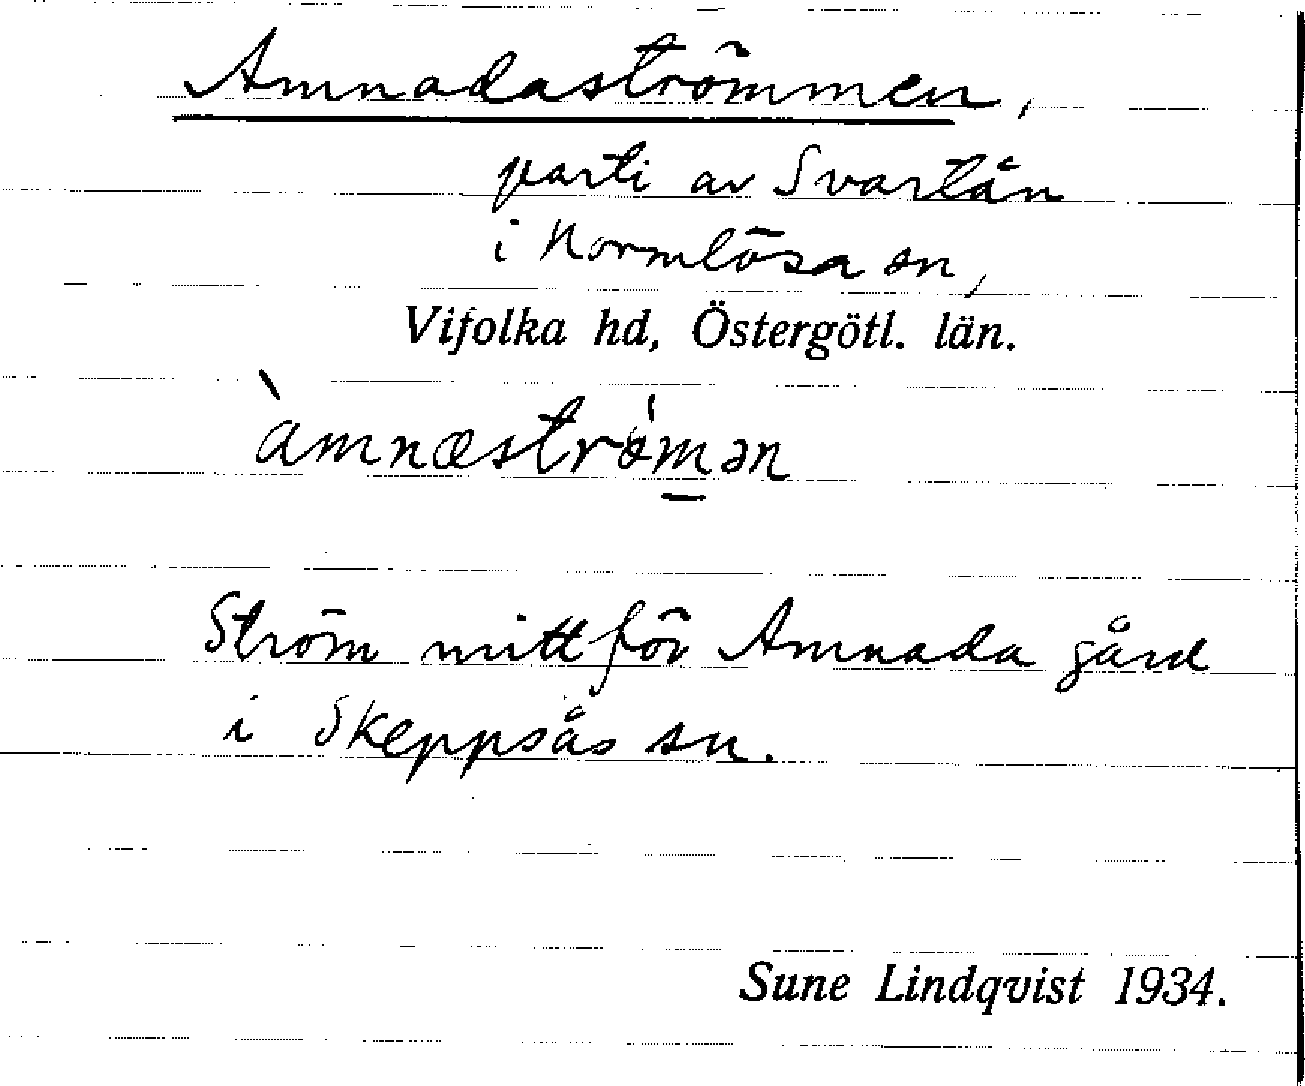 Amnadaströmmen,
parti av Svartån
i Normlösa sn,
Vifolka hd, Östergötl. län.
àmnæstrǿm̲ən
Ström mitt för Amnada gård
i Skeppsås sn.
Sune Lindqvist 1934.